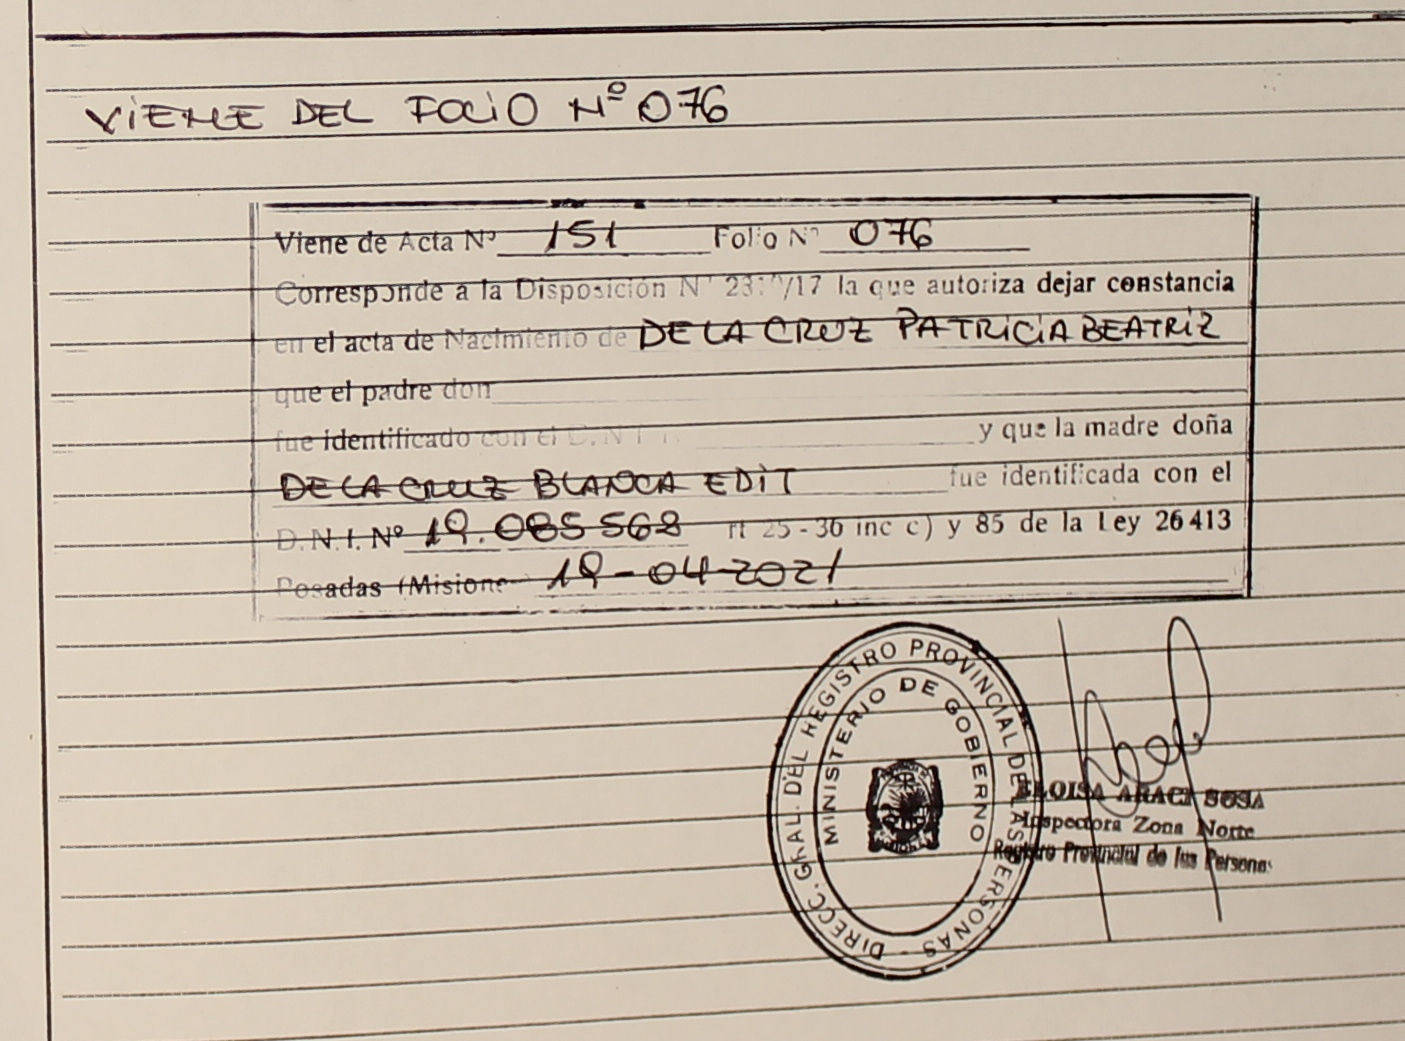 VIENE DEL FOLIO Nº 076
Viene de Acta Nº 151 Folio Nº 076
Corresponde a la Disposición Nº /17 la que autoriza dejar constancia
en el acta de Nacimiento de DE LA CRUZ PATRICIA BEATRIZ
que el padre don
fue identificado con el D.N.I. y que la madre doña
DE LA CRUZ BLANCA EDIT fue identificada con el
D.N.I. Nº 19.085 568 rt 25 - 36 inc c) y 85 de la Ley 26413
Posadas (Misione 19-04-2021
DIRECC. GRAL. DEL REGISTRO PROVINCIAL DE LAS PERSONAS -
MINISTERIO DE GOBIERNO
ELOISA ARACI SOSA
Inspectora Zona Norte
Registro Provincial de las Personas